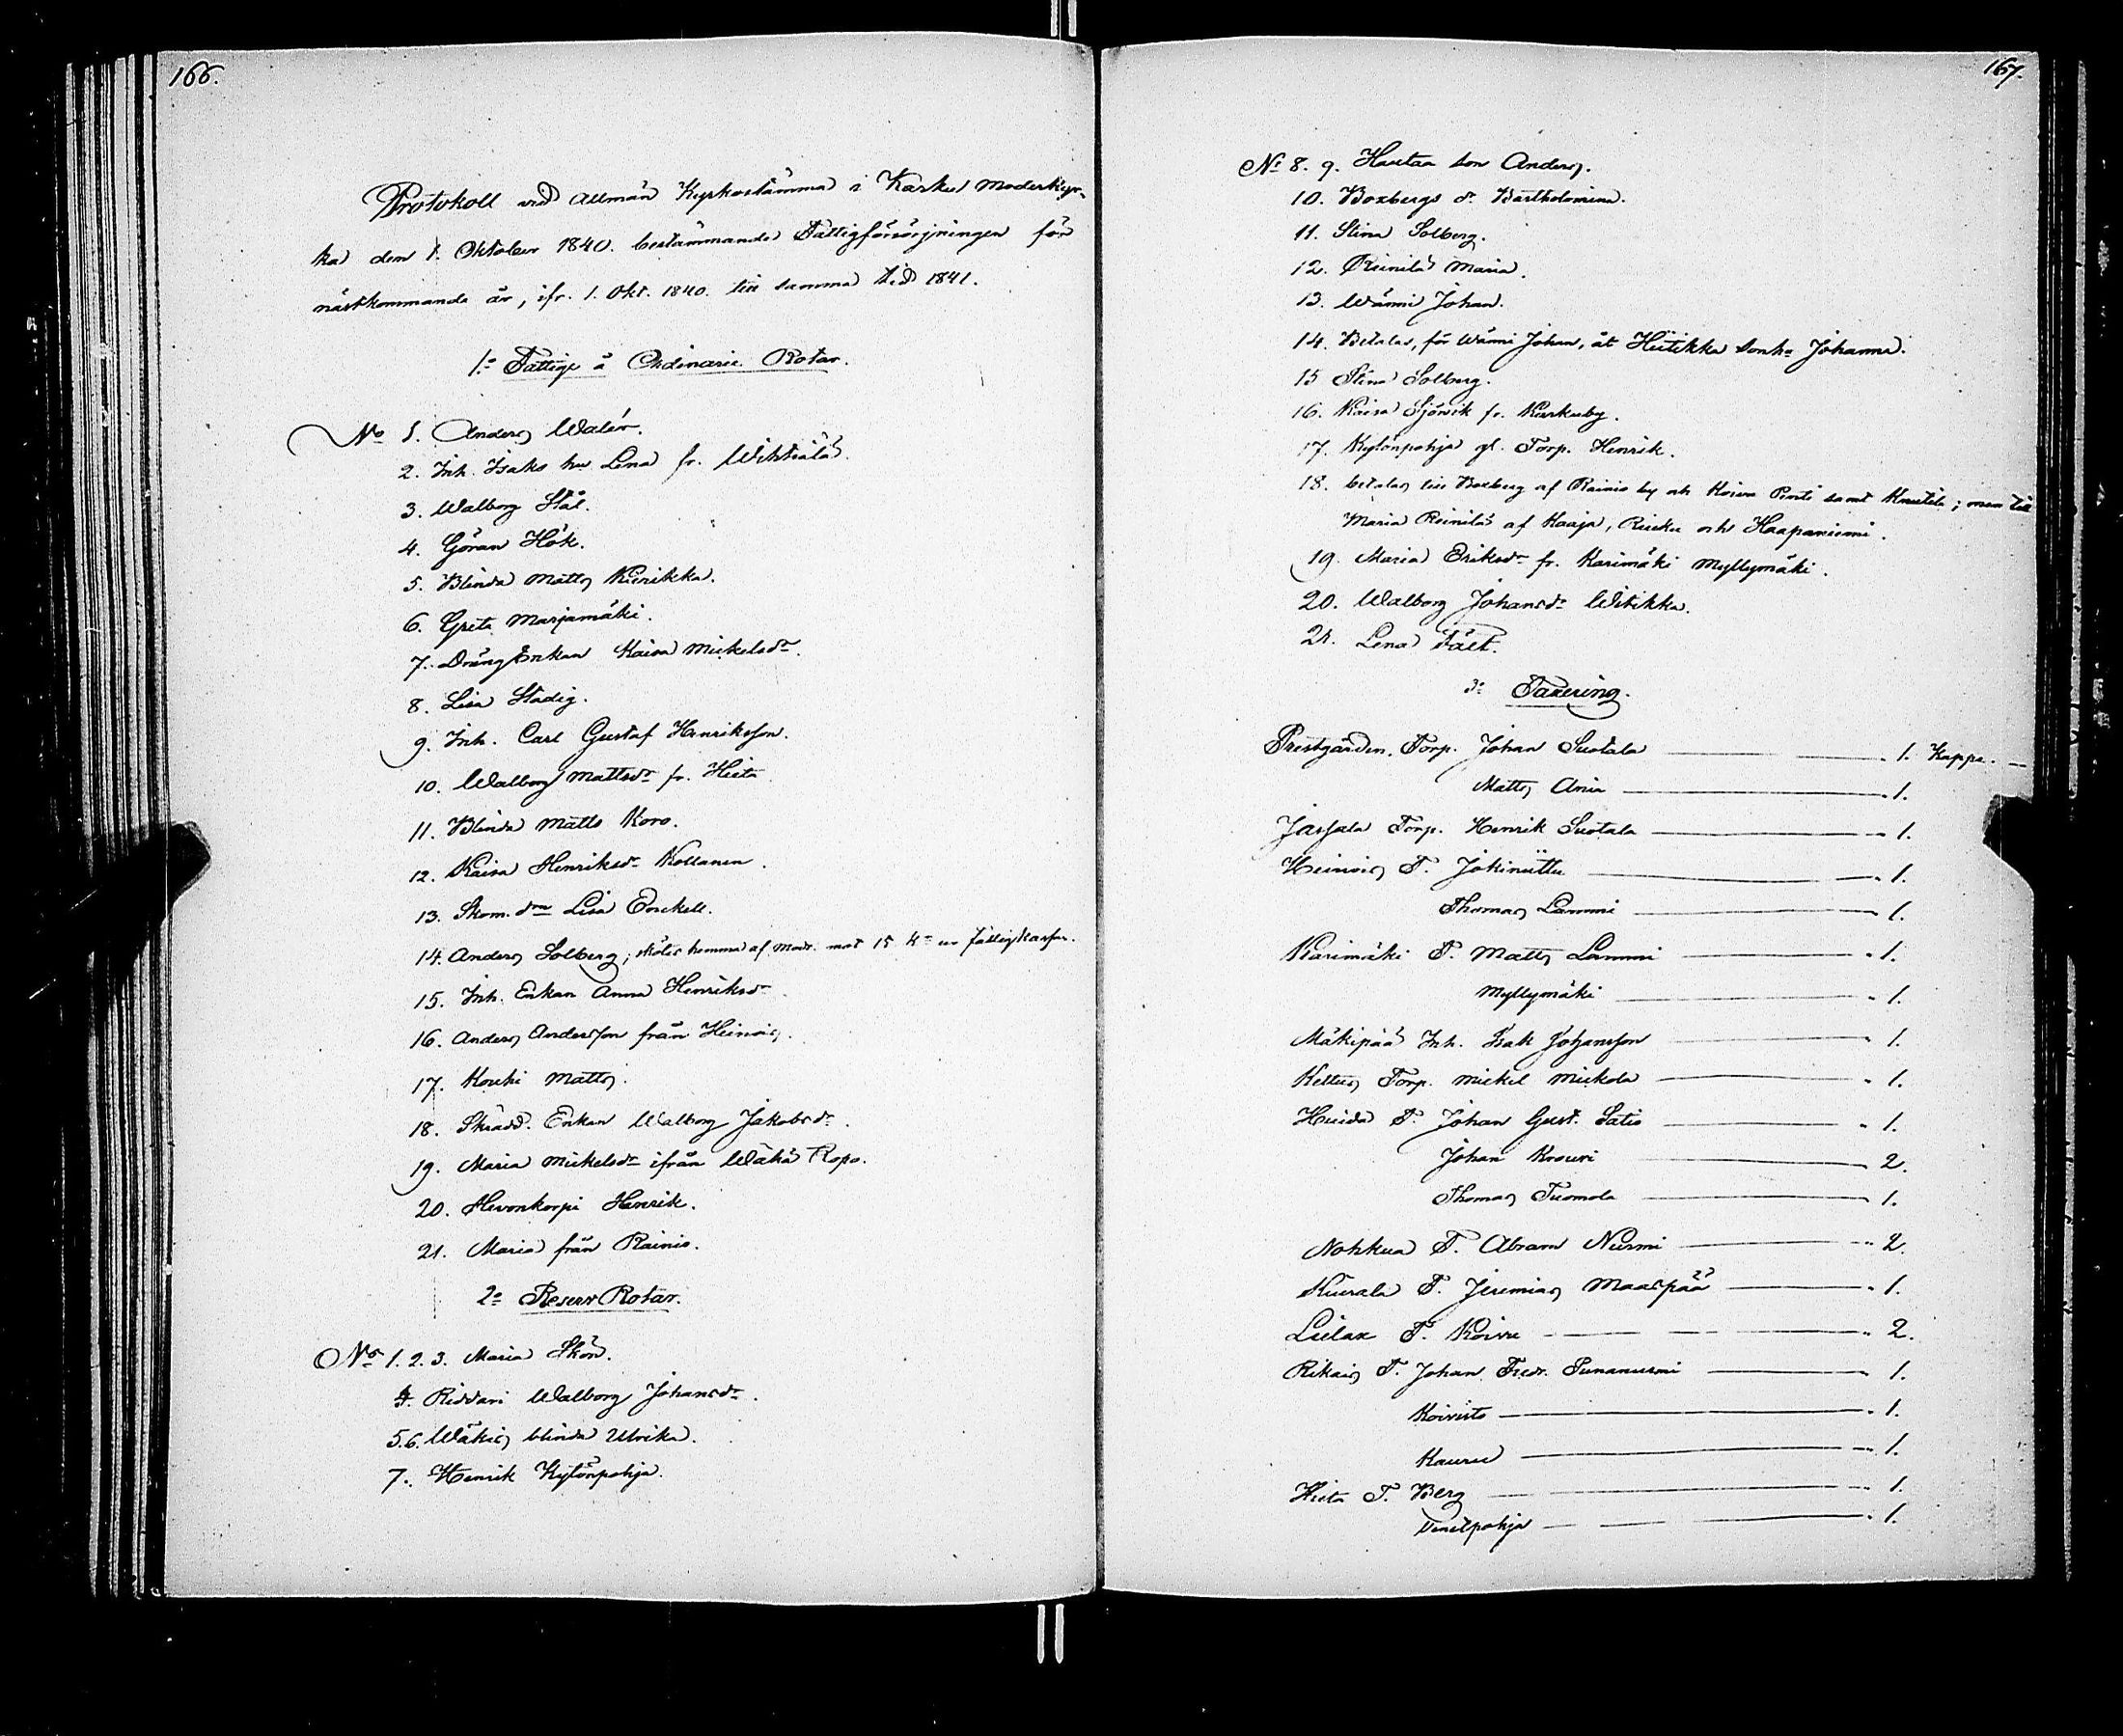 166.
Protokoll vid allmän Kyrkostämma i Karku Moderkyr-
ka den 1. Oktober 1840. bestämmande Fattigförsörjningen för
nästkommande år, ifr. 1. Okt. 1840. till samma tid 1841.
1:o Fattige å Ordinarie Rotar.
No 1. Anders Walér.
2. Inh. Isaks hu Lena fr. Wihtiälä.
3. Walborg Stål.
4. Göran Hök.
5. Blinda Matts Kiirikka.
6. Greta Marjamäki.
7. Dräng Enkan Kaisa Mickelsdr.
8. Lisa Stadig.
9. Inh. Carl Gustaf Henriksson.
10. Walborg Mattsdr fr. Hieta.
11. Blinda Matts Koro.
12. Kaisa Henriksdr Kollanen.
13. Skom. drn Lisa Enckell.
14. Anders Solberg, skötes hemma af modr. mot 15 ur fattigkassan.
15. Inh. Enkan Anna Henriksdr.
16. Anders Andersson från Heinois.
17. Kouhi Matts.
18. Skrädd. Enkan Walborg Jakobsdr.
19. Maria Mickelsdr ifrån Wähä Ropo.
20. Hevonkorpi Henrik.
21. Maria från Rainio.
2:o Reserv Rotar.
No 1. 2. 3. Maria Skön.
4. Riddari Walborg Johansdr.
5. 6. Wäkis blinda Ulrika.
7. Henrik Kylänpohja.
167.
No 8. 9. Hautaa son Anders.
10. Boxbergs dr Bartholomina.
11. Stina Solberg.
12. Reinilä Maria.
13. Wänni Johan.
14. Betalas, för Wänni Johan, åt Hiitikka sonhu Johanna.
15 Stina Solberg.
16. Kaisa Sjövik fr. Karkuby.
17. Kylänpohja gl. Torp. Henrik.
18. betalas till Boxberg af Rainio by och Koivu Pentti samt Knuutila; men till
Maria Reinilä af Kaaja, Riuku och Haapaniemi.
19. Maria Eriksdr fr. Karimäki Myllymäki.
20. Walborg Johansdr Witikka.
21. Lena Fält.
3:o Taxering.
Prestgården. Torp. Johan Suotala 1. Kappe.
Matts Ania 1.
Jassala Torp. Henrik Suotala 1.
Heinois T. Jokiniitty 1.
Thomas Lammi 1.
Karimäki T. Matts Lammi 1.
Myllymäki 1.
Mäkipää Inh. Isak Johansson 1.
Kellus Torp. Mickel Mickola 1.
Huida T. Johan Gust. Satio 1.
Johan Krouvi 2.
Thomas Tuomola 1.
Nohkua T. Abram Nurmi 2.
Kuusala T. Jeremias Maaspää 1.
Lielax T. Koivu 2.
Rikais T. Johan Fredr. Punanurmi 1.
Koivisto 1.
Kauru 1.
Hieta T. Berg 1.
1.